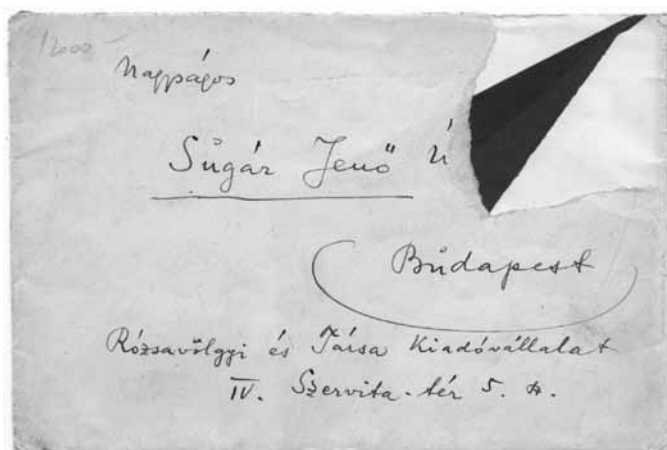 12000
Nagyságos
Sugár Jenő Ú
Budapest
Rózsavölgyi és Társa Kiadóvállalat
IV. Szervita-tér 5. sz.